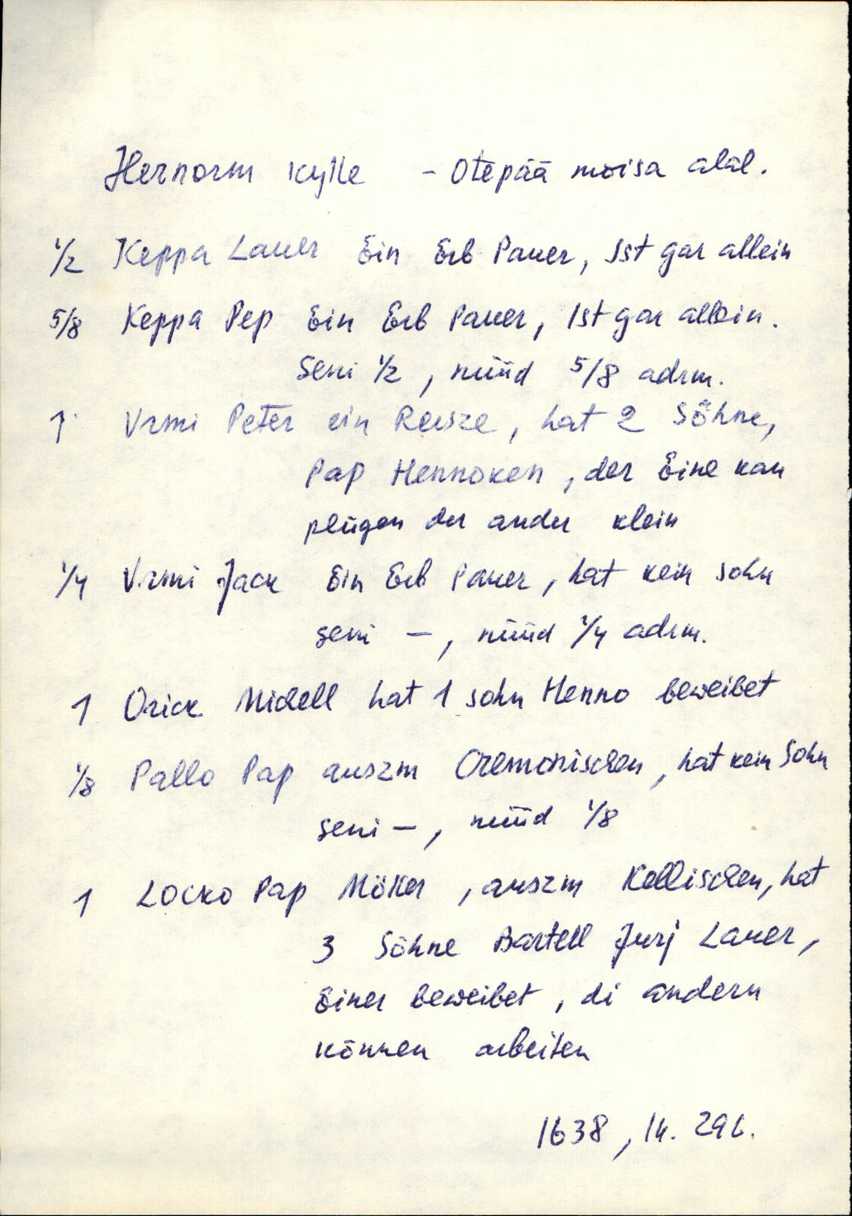 Hernorm Kylle - Otepää moisa alal.
1/2 Keppa Lauer Ein Erb Pauer, Ist gar allein
5/8 Keppa Pep Ein Erb Pauer, Ist gar allein.
Seni 1/2, nüüd 5/8 adrm.
1 Vrmi Peter ein Reusze, hat 2 Söhne,
Pap Hennoken, der Eine kan
plügen der ander klein
1/4 Vrmi Jack Ein Erb Pauer, hat kein sohn
seni —, nüüd 1/4 adrm.
1 Orick Michell hat 1 sohn Henno beweibet
1/8 Pallo Pap auszm Cremonischen, hat kein Sohn
seni —, nüüd 1/8
1 Locko Pap Möller, auszm Kellischen, hat
3 Söhne Bartell Jurj Lauer,
Einer beweibet, di andern
können arbeiten
1638, lk. 296.